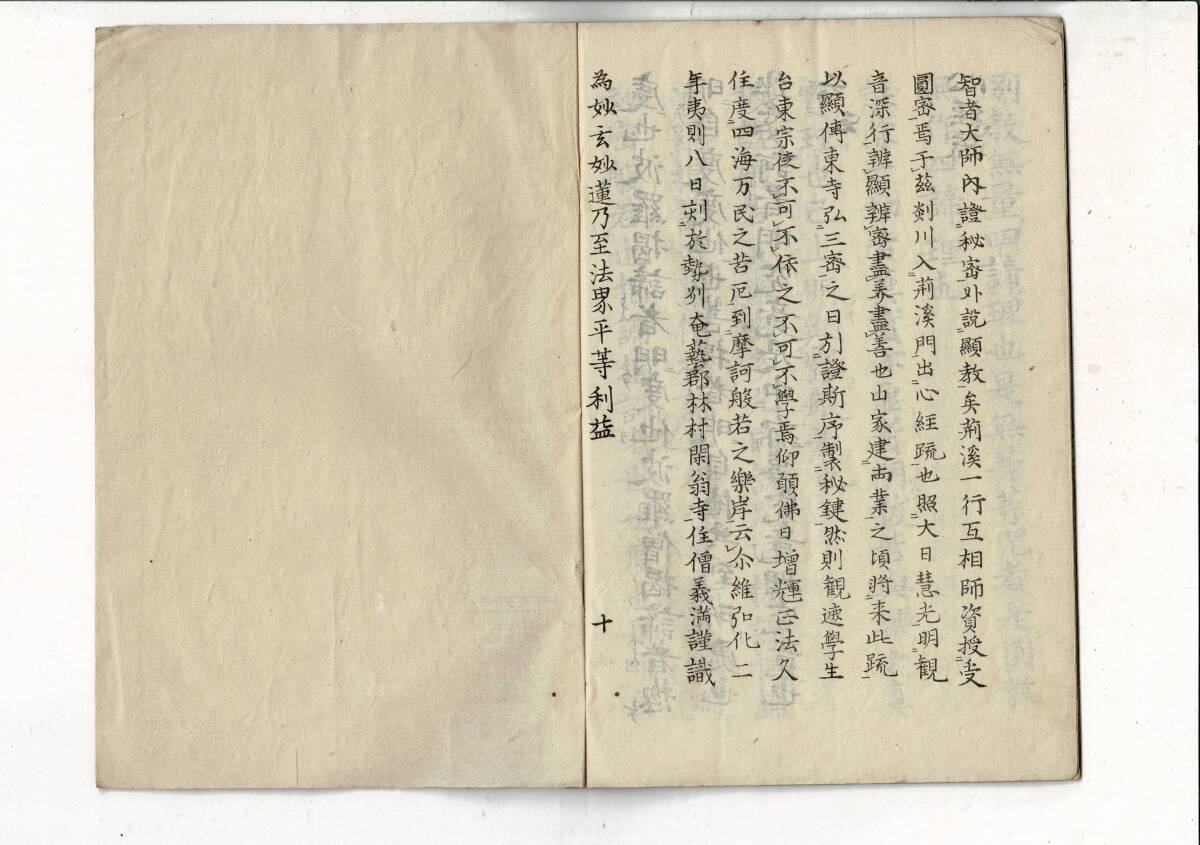 智者大師內證秘密外說顯教矣荊溪一行互相師資授受
圓密焉于茲剡川入荊溪門出心經疏也照大日慧光明觀
音深行辨顯辨密盡美盡善也山家建兩業之頃將來此疏
以顯傳東寺弘三密之日引證斯序製秘鍵然則觀遮學生
台東宗徒不可不依之不可不學焉仰願佛日增輝正法久
住度四海万民之苦厄到摩訶般若之樂岸云尒維弘化二
年夷則八日刻於勢州奄藝郡林村閑翁寺住僧義滿謹識
為妙玄妙蓮乃至法界平等利益
十